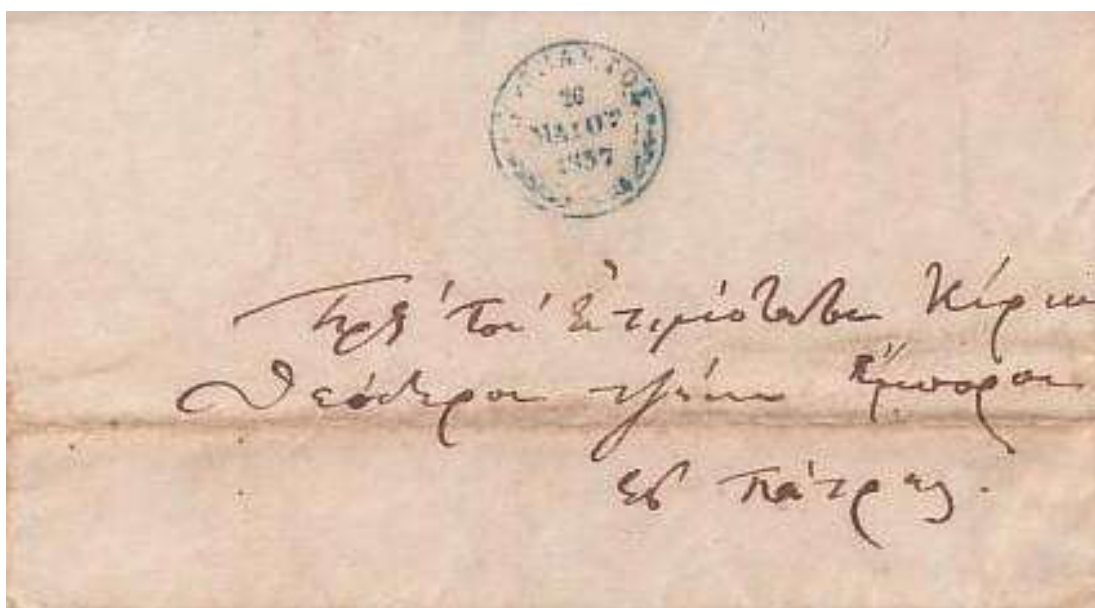 26
ΜΑΙΟΥ
1857
Πρὸς τὸν ἐντιμώτατον Κύριον
Θεόδωρον ἔμπορον
εἰς Πάτρας.